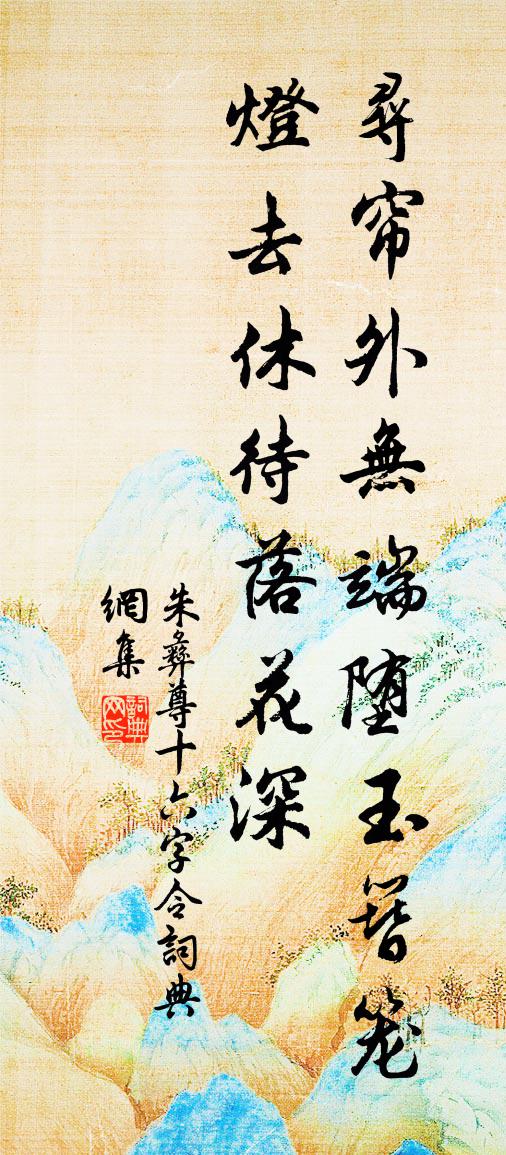 尋帘外無端墮玉簪笼
燈去休待落花深
朱彝尊十六字令詞典
網集
詞典
网印